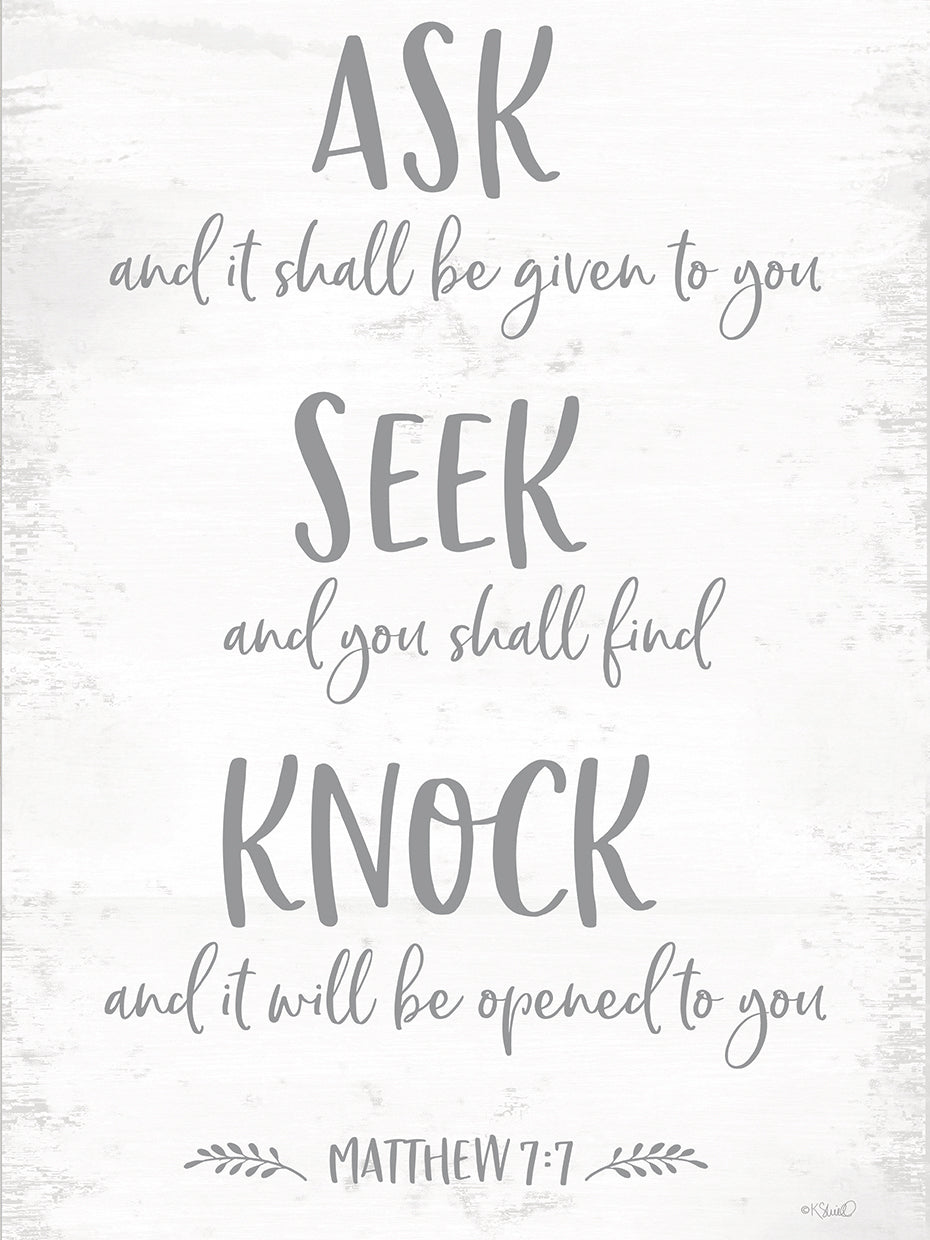 ASK
and it shall be given to you
SEEK
and you shall find
KNOCK
and it will be opened to you
MATTHEW 7:7